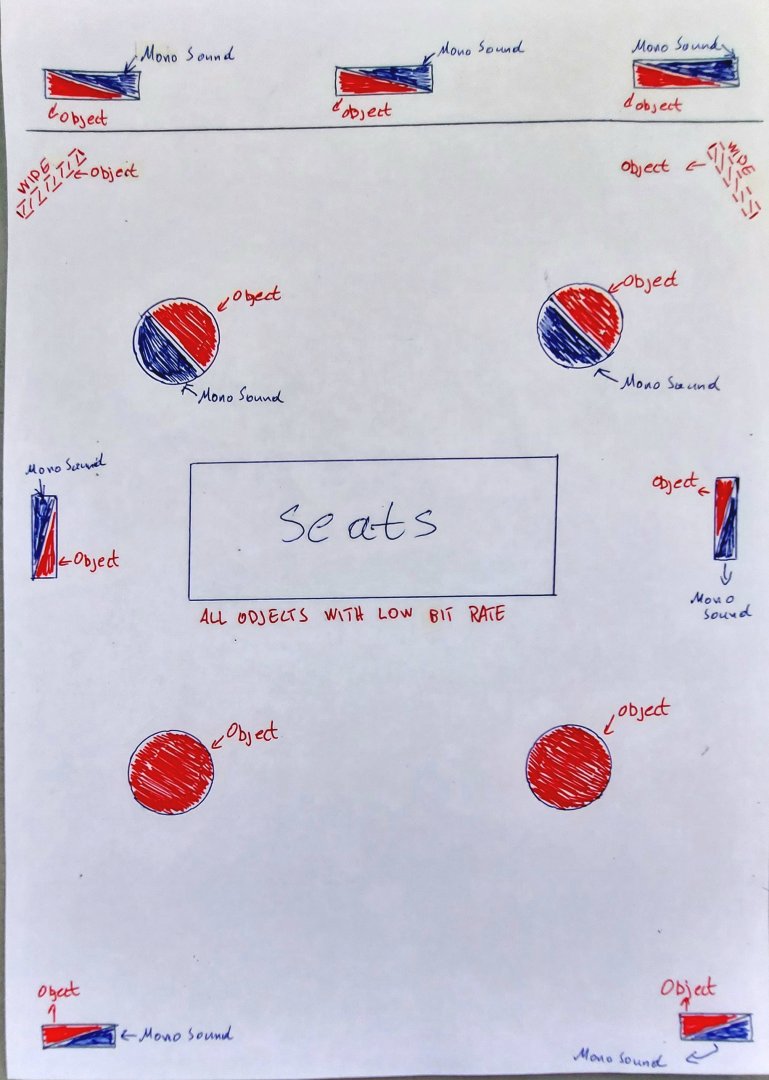 Mono Sound
Mono Sound
Mono Sound
Object
Object
Object
WIDE
Object
Object
WIDE
Object
Object
Mono Sound
Mono Sound
Mono Sound
Object
Object
Seats
Mono
Sound
ALL OBJECTS WITH LOW BIT RATE
Object
Object
Object
Object
Mono Sound
Mono Sound